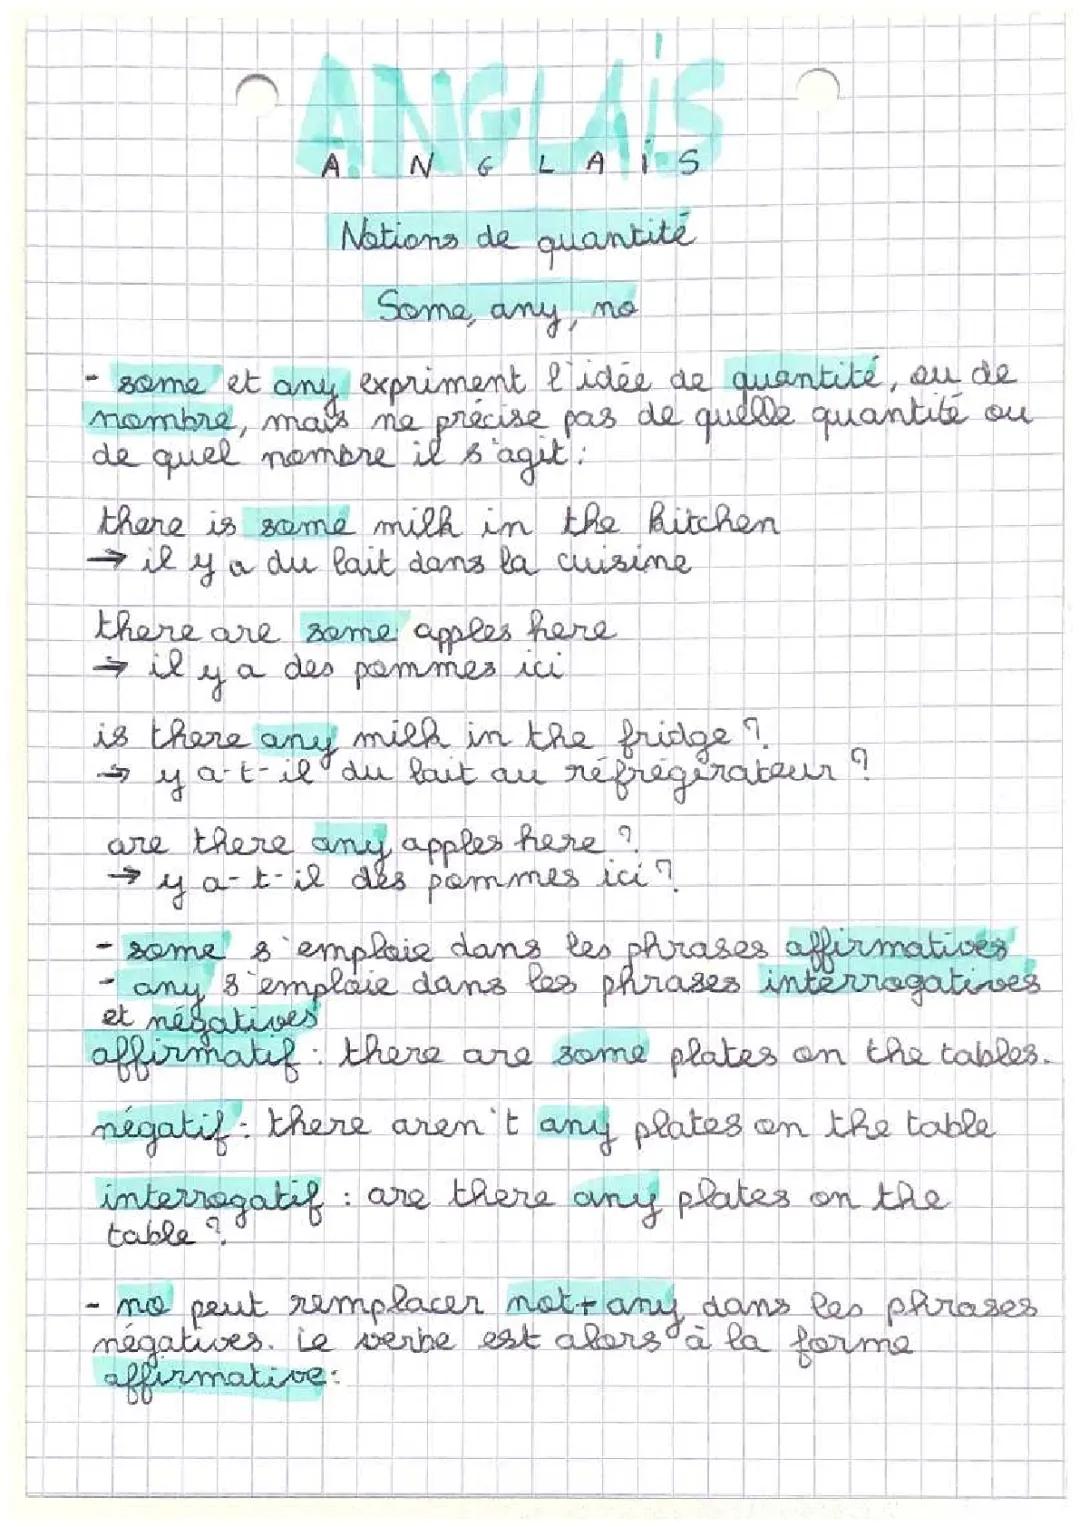 ANGLAIS
A N G L A I S
Notions de quantité
Some, any, no
- some et any expriment l'idée de quantité, ou de
nombre, mais ne précise pas de quelle quantité ou
de quel nombre il s'agit :
there is some milk in the kitchen
→ il y a du lait dans la cuisine
there are some apples here
→ il y a des pommes ici
is there any milk in the fridge ?
→ y a-t-il du lait au réfrégirateur ?
are there any apples here ?
→ y a-t-il des pommes ici ?
- some s'emploie dans les phrases affirmatives
- any s'emploie dans les phrases interrogatives
et négatives
affirmatif : there are some plates on the tables.
négatif : there aren't any plates on the table
interrogatif : are there any plates on the
table ?
- no peut remplacer not + any dans les phrases
négatives. Le verbe est alors à la forme
affirmative :